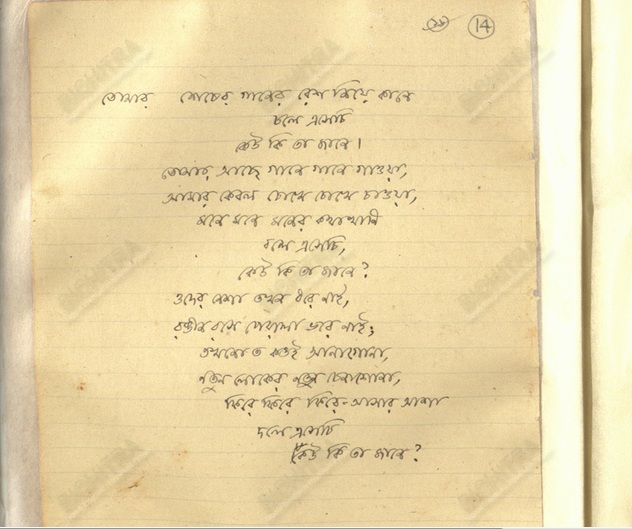 ১৪
তোমার শেষের গানের রেশ নিয়ে কানে
চলে এসেচি
কেউ কি তা জানে।
তোমার আছে গানে গানে গাওয়া,
আমার কেবল চোখে চোখে চাওয়া,
মনে মনে মনের কথাখানি
বলে এসেচি,
কেউ কি তা জানে?
ওদের নেশা তখন ধরে নাই,
রঙীন রসে পেয়ালা ভরে নাই;
তখনো ত কতই আনাগোনা,
নতুন লোকের নতুন চেনাশোনা,
ফিরে ফিরে ফিরে-আসার আশা
দলে এসেচি
কেউ কি তা জানে?